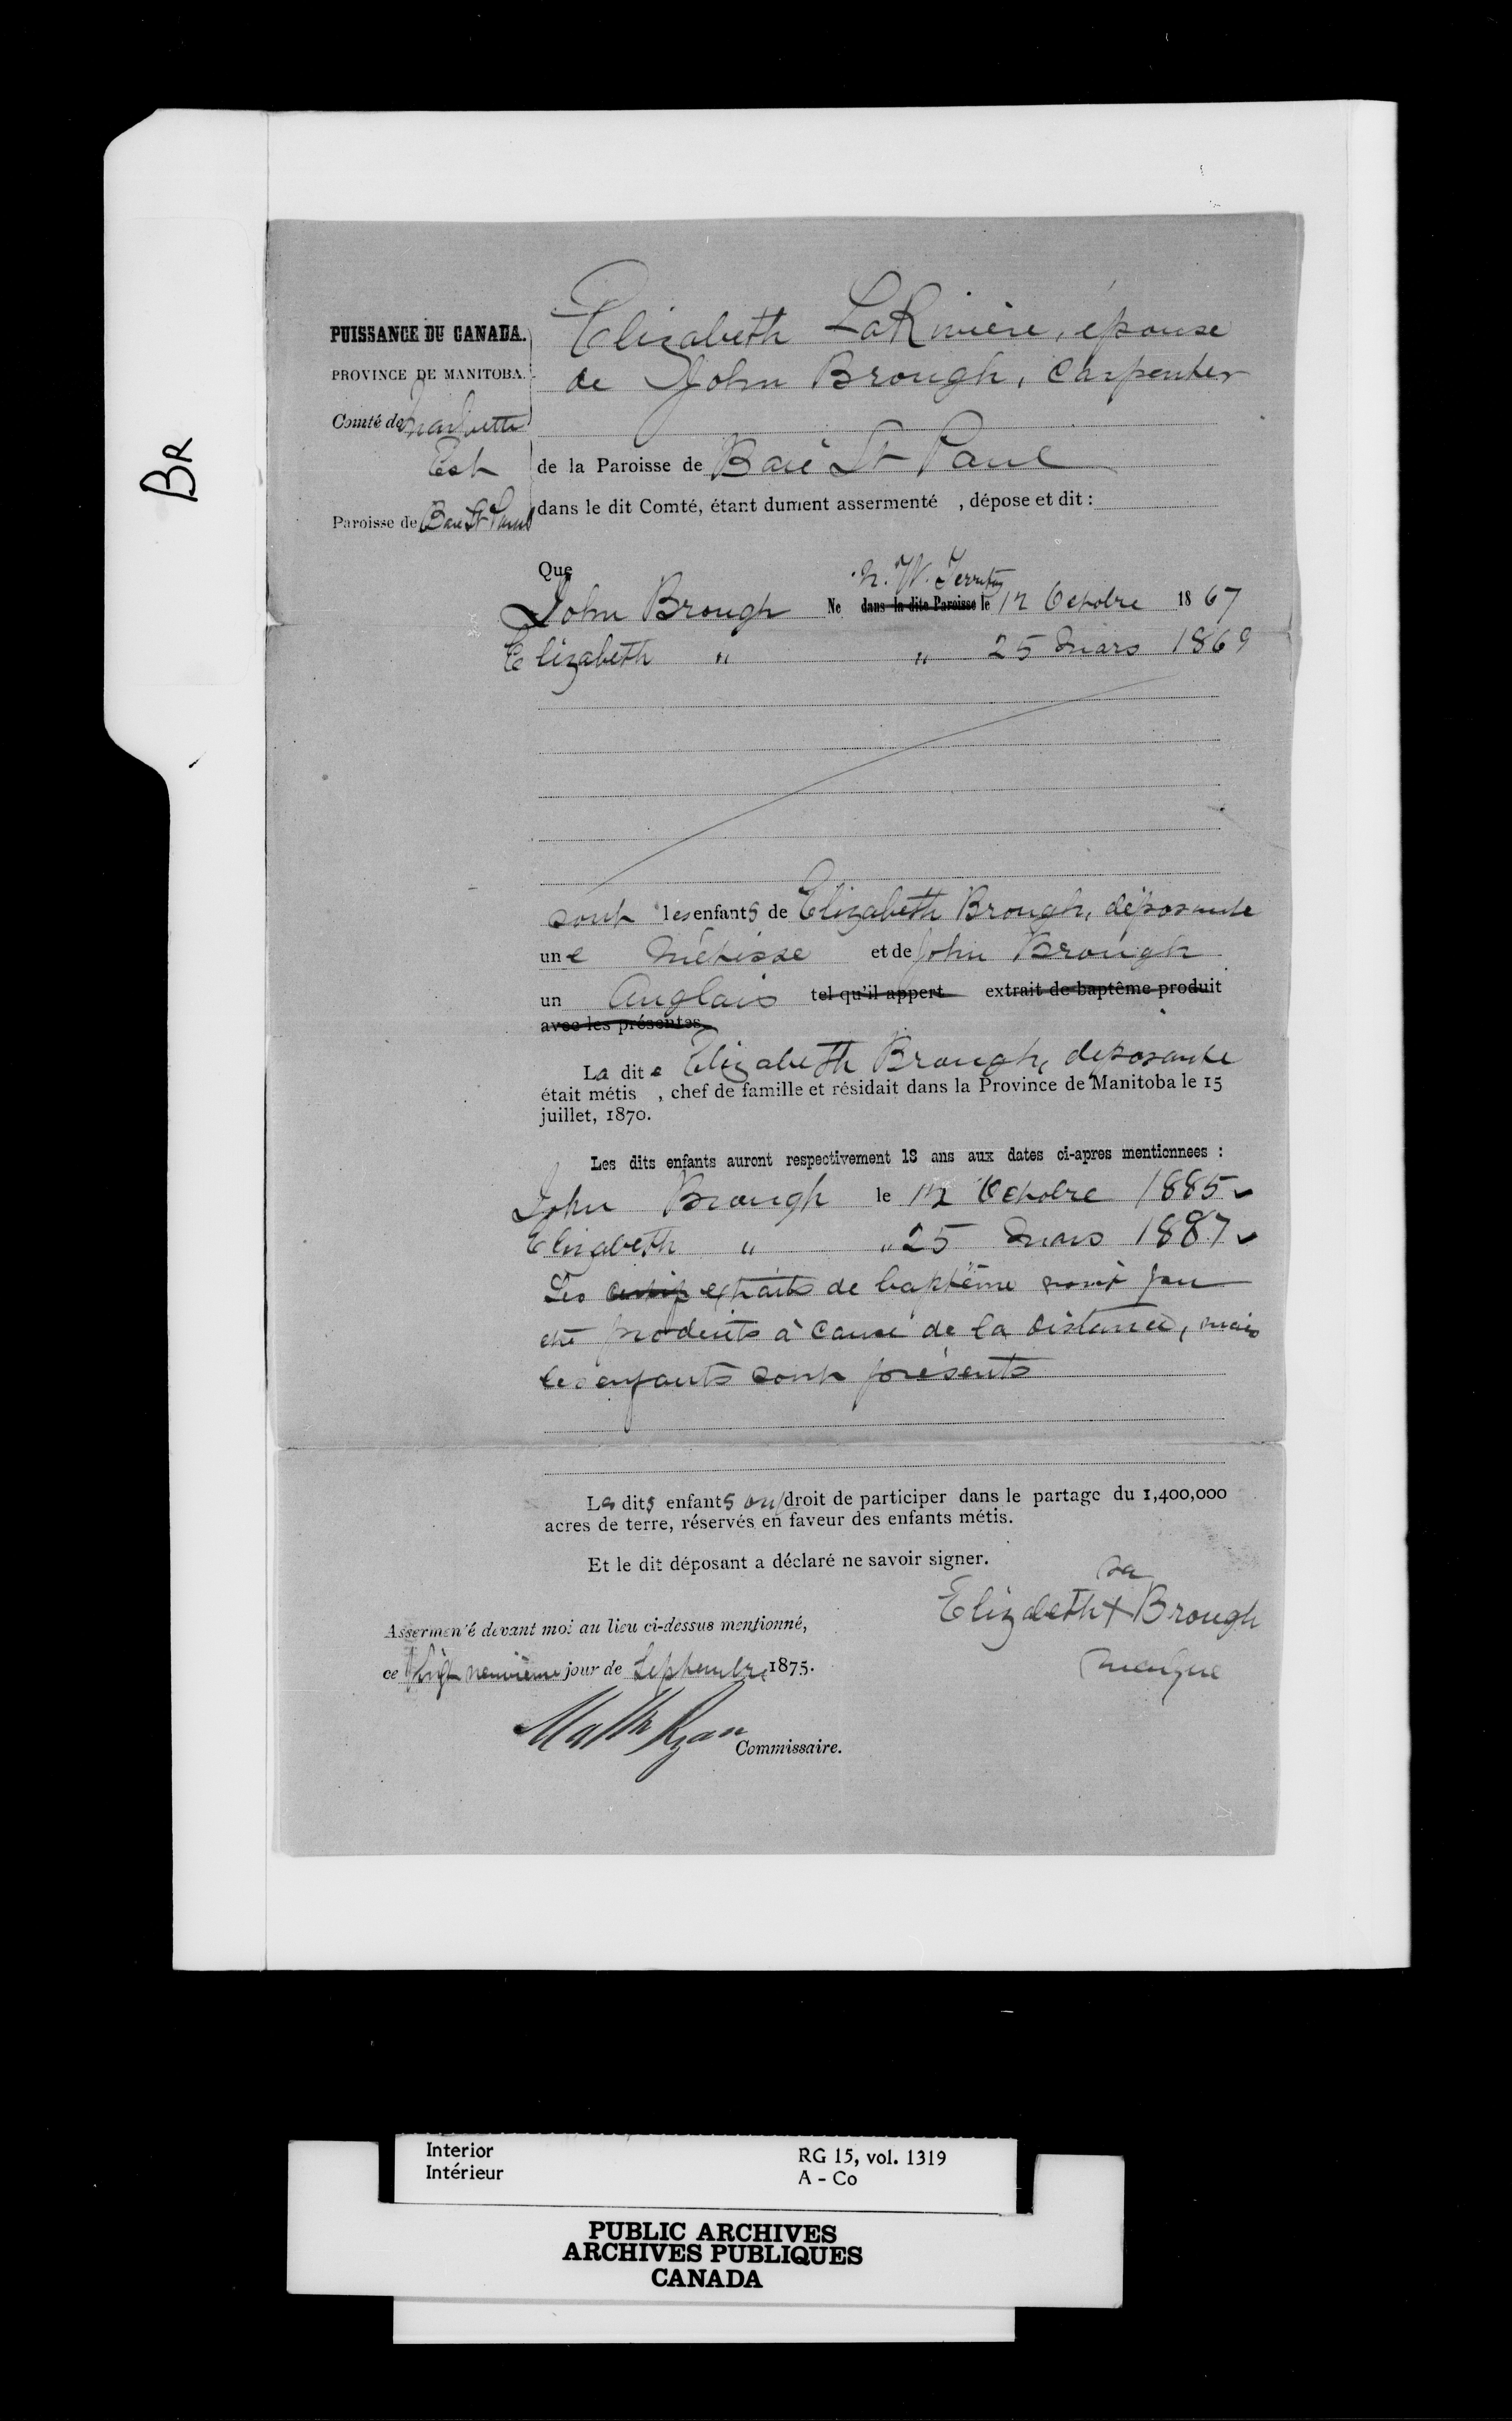 BR
PUISSANCE DU CANADA.
PROVINCE DE MANITOBA.
Comté de Marquette
Est
Paroisse de Baie St Paul
Elizabeth LaRivière, épouse
de John Brough, Carpenter
de la Paroisse de Baie St Paul
dans le dit Comté, étant dument assermenté , dépose et dit :
Que
N. W. Territory
John Brough Ne dans la dite Paroisse le 12 Octobre 1867
Elizabeth " " 25 Mars 1869
sont les enfants de Elizabeth Brough, déposante
une Métisse et de John Brough
un Anglais tel qu'il appert extrait de baptême produit
avec les présentes.
La dite Elizabeth Brough, deposante
était métis , chef de famille et résidait dans la Province de Manitoba le 15
juillet, 1870.
Les dits enfants auront respectivement 18 ans aux dates ci-apres mentionnees :
John Brough le 12 Octobre 1885
Elizabeth " " 25 Mars 1887
Les extraits de baptême n'ont pas
été produits à cause de la distance, mais
les enfants sont présents
Les dits enfants ont droit de participer dans le partage du 1,400,000
acres de terre, réservés en faveur des enfants métis.
Et le dit déposant a déclaré ne savoir signer.
sa
Elizabeth + Brough
marque
Assermenté devant moi au lieu ci-dessus mentionné,
ce Vingt neuvième jour de Septembre 1875.
Matth Ryan
Commissaire.
Interior
Intérieur
RG 15, vol. 1319
A - Co
PUBLIC ARCHIVES
ARCHIVES PUBLIQUES
CANADA